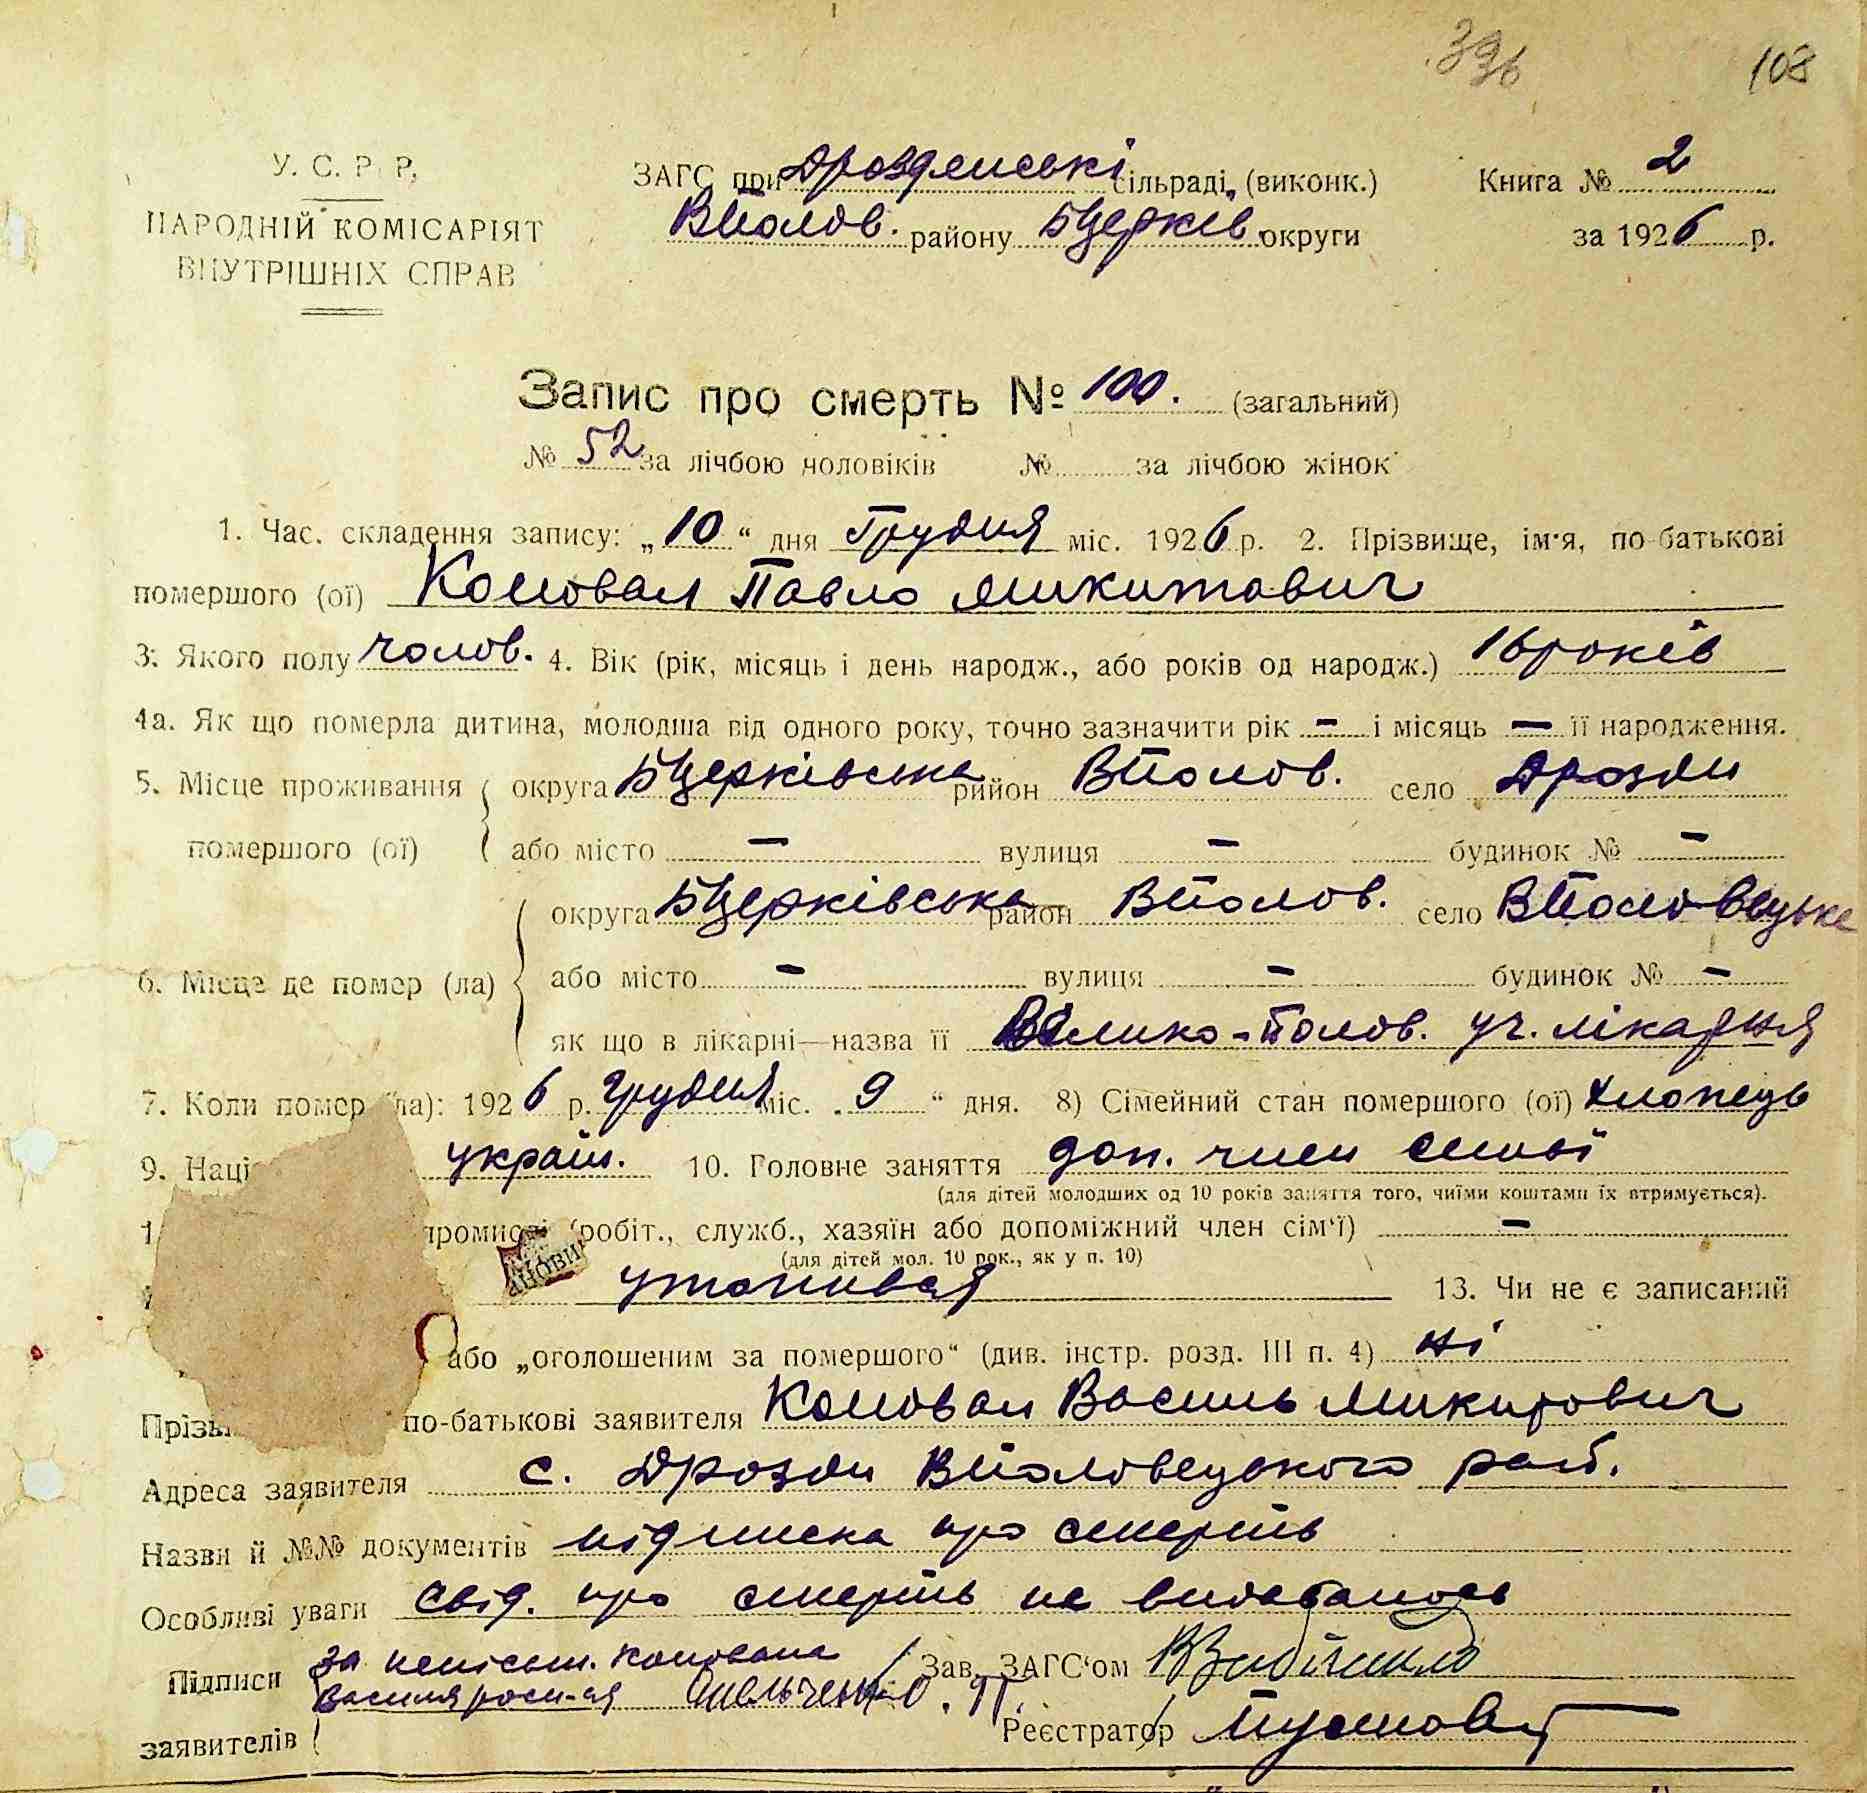 396 108
У. С. Р. Р.
НАРОДНІЙ КОМІСАРІЯТ
ВНУТРІШНІХ СПРАВ
ЗАГС при Дроздянські сільраді, (виконк.) Книга № 2
ВПолов. району БЦерків. округи за 1926 р.
Запис про смерть № 100. (загальний)
№ 52 за лічбою чоловіків № за лічбою жінок
1. Час. складення запису: „10“ дня Грудня міс. 1926 р. 2. Прізвище, ім'я, по-батькові
помершого (ої) Коновал Павло Микитович
3. Якого полу чолов. 4. Вік (рік, місяць і день народж., або років од народж.) 16 років
4а. Як що померла дитина, молодша від одного року, точно зазначити рік – і місяць – її народження.
5. Місце проживання округа БЦерківська район ВПолов. село Дрозди
помершого (ої) або місто – вулиця – будинок № –
округа БЦерківська район ВПолов. село ВПоловецьке
6. Місце де помер (ла) або місто – вулиця – будинок № –
як що в лікарні—назва її Велико-Полов. уч. лікарня
7. Коли помер (ла): 1926 р. Грудня міс. „9“ дня. 8) Сімейний стан помершого (ої) хлопець
9. Наці україн. 10. Головне заняття доп. член семьї
(для дітей молодших од 10 років заняття того, чиїми коштами їх втримується).
1 промислі (робіт., служб., хазяїн або допоміжний член сім'ї) –
(для дітей мол. 10 рок., як у п. 10)
АНОВИ утопився 13. Чи не є записаний
або „оголошеним за помершого“ (див. інстр. розд. III п. 4) ні
Прізв по-батькові заявителя Коновал Василь Микитович
Адреса заявителя с. Дрозди ВПоловецького рай.
Назви й №№ документів підписка про смерть
Особливі уваги свід. про смерть не видавалось
Підписи за неписьм. Коновала Зав. ЗАГС'ом
Василя росп-ся Омельченко. П.
заявителів Реєстратор